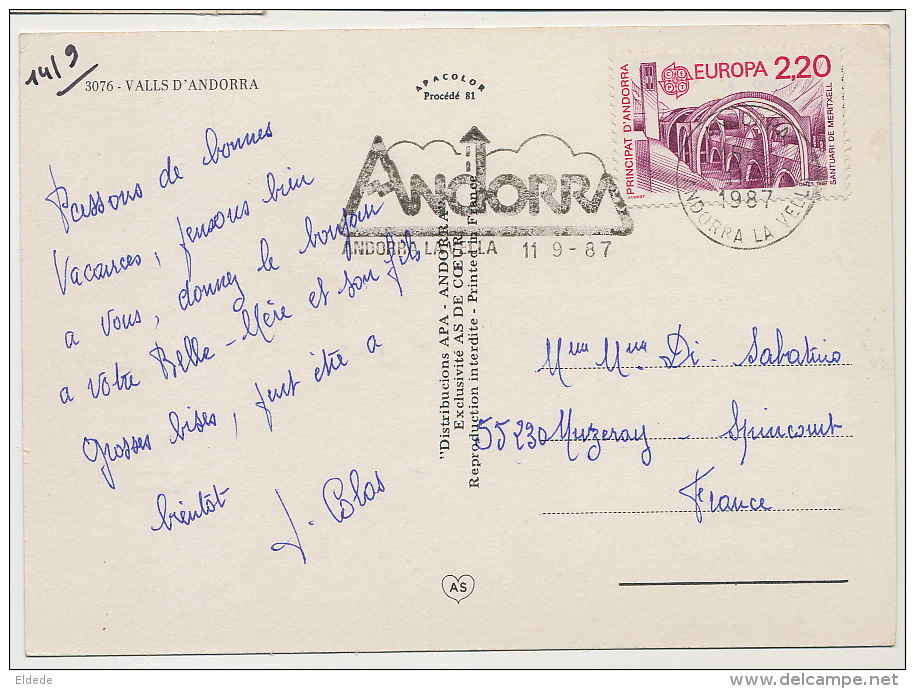 14/9
3076 - VALLS D'ANDORRA
APACOLOR
Procédé 81
PRINCIPAT D'ANDORRA
EUROPA 2,20
SANTUARI DE MERITXELL
ANDORRA
ANDORRA LA VELLA 11 9 - 87
1987
ANDORRA LA VELLA
Passons de bonnes
Vacances, pensons bien
a vous, donnez le bonjour
a votre Belle-Mère et son fils
Grosses bises, peut être a
bientôt
J. Blas
"Distribucions APA - ANDORRA"
Exclusivité AS DE CŒUR
Reproduction interdite - Printed in France
Di - Sabatino
55230 Muzeray - Spincourt
France
AS
Eldede
www.delcampe.net